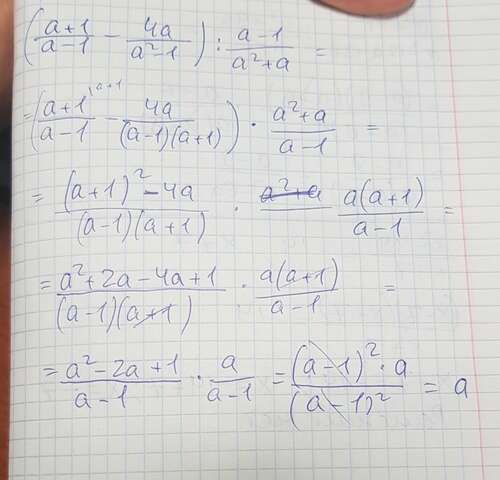 (a+1/a-1 - 4a/a²-1) : a-1/a²+a =
= (a+1^(a+1)/a-1 - 4a/(a-1)(a+1)) · a²+a/a-1 =
= (a+1)²-4a/(a-1)(a+1) · a(a+1)/a-1 =
= a²+2a-4a+1/(a-1)(a+1) · a(a+1)/a-1 =
= a²-2a+1/a-1 · a/a-1 = (a-1)²·a/(a-1)² = a